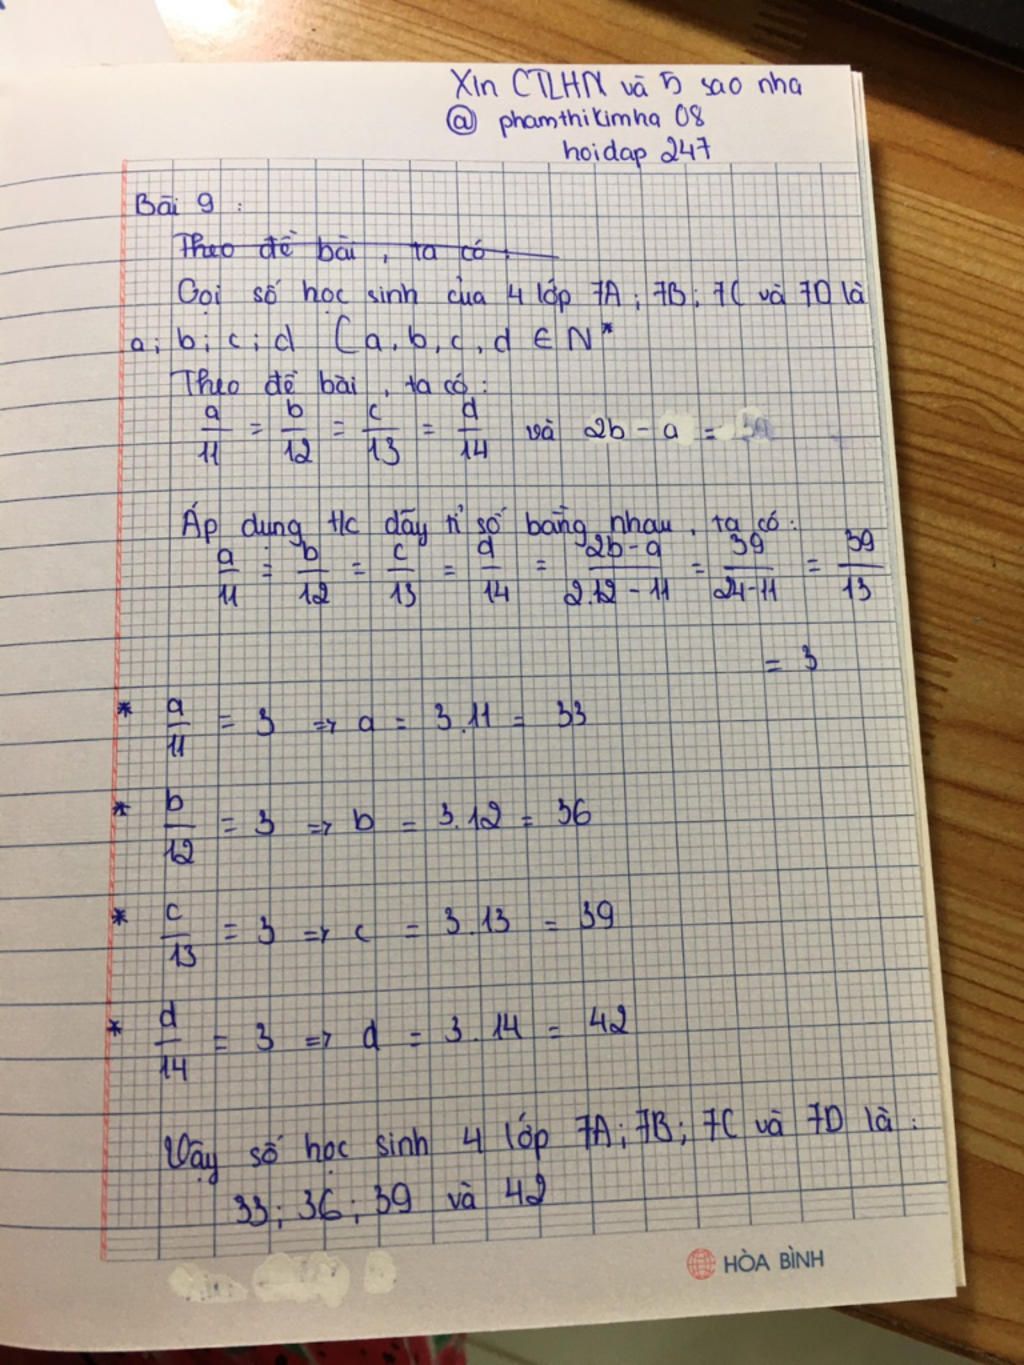 Xin CTLHN và 5 sao nha
@ phamthikimha 08
hoidap 247
Bài 9 :
Theo đề bài, ta có :
Gọi số học sinh của 4 lớp 7A; 7B; 7C và 7D là
a; b; c; d (a, b, c, d ∈ N*
Theo đề bài, ta có :
a/11 = b/12 = c/13 = d/14 và 2b - a =
Áp dụng t/c dãy tỉ số bằng nhau, ta có :
a/11 = b/12 = c/13 = d/14 = 2b-a/2.12-11 = 39/24-11 = 39/13
= 3
* a/11 = 3 => a = 3.11 = 33
* b/12 = 3 => b = 3.12 = 36
* c/13 = 3 => c = 3.13 = 39
* d/14 = 3 => d = 3.14 = 42
Vậy số học sinh 4 lớp 7A; 7B; 7C và 7D là :
33; 36; 39 và 42
HÒA BÌNH